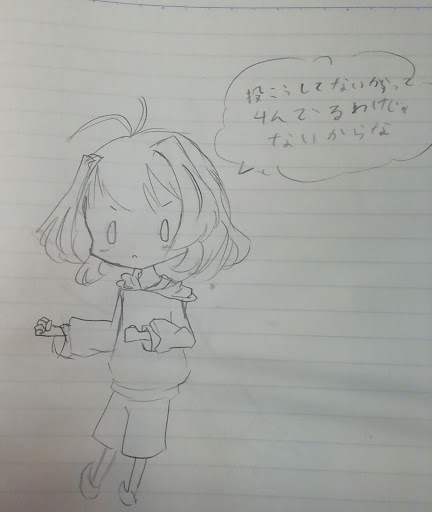 投こうしてないからって
4んでるわけじゃ
ないからな